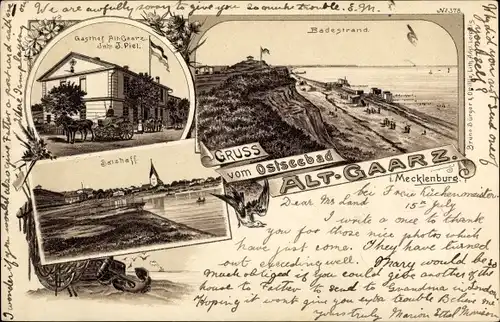 We are awfully sorry to give you so much trouble. E.M.
No. 378.
Gasthof Alt-Gaarz.
Inh. J. Piel.
Badestrand.
Salzhaff
GRUSS
vom Ostseebad
ALT-GAARZ.
i. Mecklenburg.
Dear Mr Land
15th July
I write a once to thank
you for those nice photos which
have just come. They have turned
out exceeding well. Mary would be so
much obliged if you could give another of the
house to Father to send to Grandma in London
Hoping it wont give you extra trouble Believe me
Yours truly. Marion Ethel
I wonder if you would also give Father a postcard
Why did you not
yourself